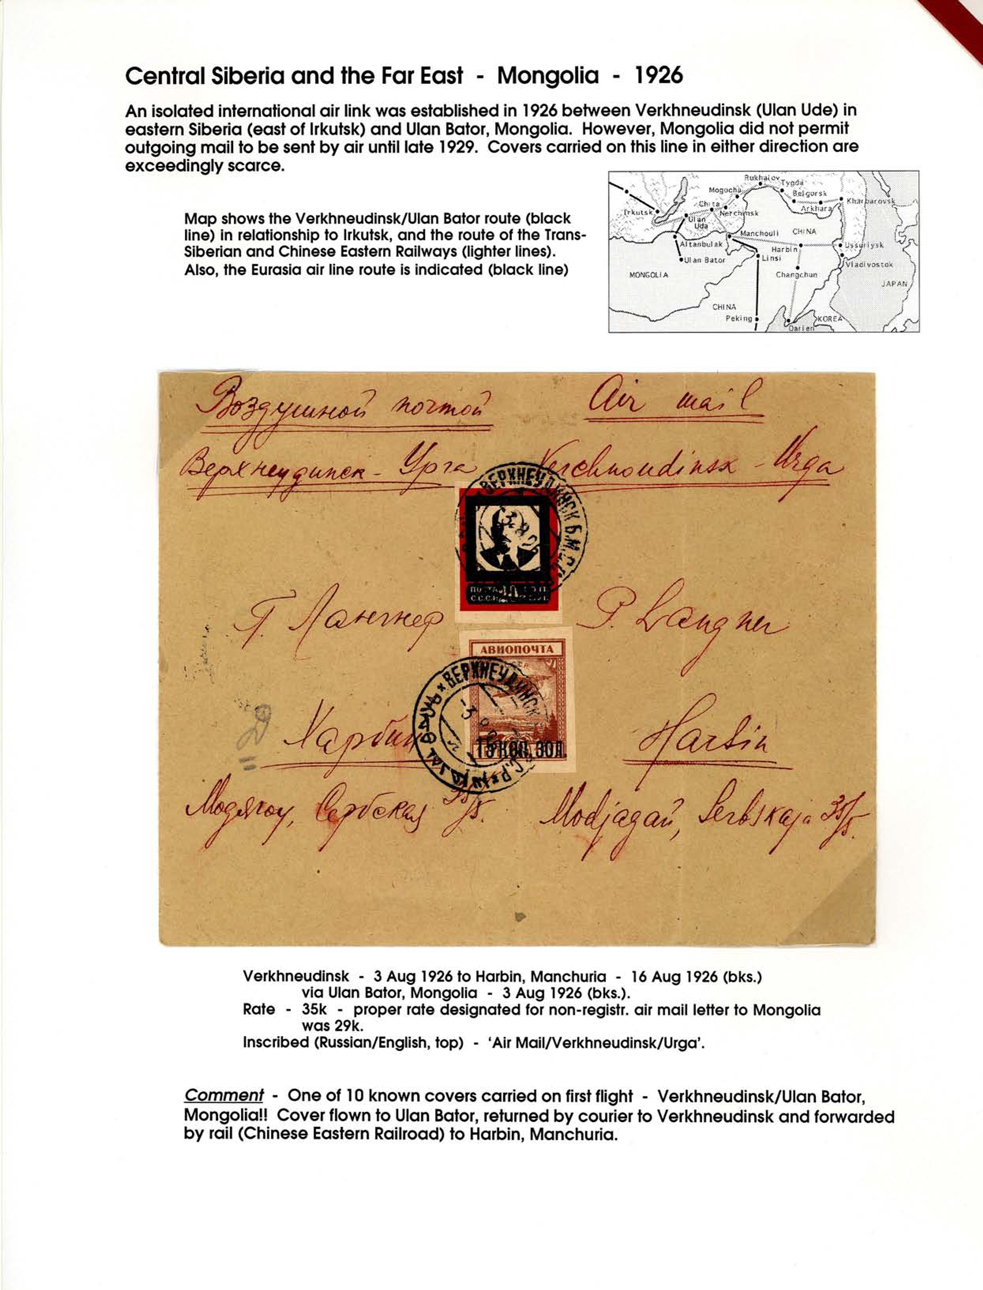 Central Siberia and the Far East - Mongolia - 1926
An isolated international air link was established in 1926 between Verkhneudinsk (Ulan Ude) in
eastern Siberia (east of Irkutsk) and Ulan Bator, Mongolia. However, Mongolia did not permit
outgoing mail to be sent by air until late 1929. Covers carried on this line in either direction are
exceedingly scarce.
Map shows the Verkhneudinsk/Ulan Bator route (black
line) in relationship to Irkutsk, and the route of the Trans-
Siberian and Chinese Eastern Railways (lighter lines).
Also, the Eurasia air line route is indicated (black line)
Rukhalov
Tygda
Mogocha
Belgorsk
Irkutsk
Chita
Arkhara
Khabarovsk
Ulan
Uda
Nerchinsk
Manchouli
CHINA
Altanbulak
Harbin
Ussuriysk
Ulan Bator
Linsi
Vladivostok
MONGOLIA
Changchun
JAPAN
CHINA
Peking
KOREA
Darien
Воздушной почтой
Air mail
Верхнеудинск - Урга
Verchneudinsk - Urga
ВЕРХНЕУДИНСК Б.М.
Г. Лангнер
P. Langner
АВИОПОЧТА
ВЕРХНЕУДИНСК
15 КОП. ЗОЛ.
Харбин
Harbin
Модягоу, Сербская 35/5.
Modjagau, Serbskaja 35/5.
Verkhneudinsk - 3 Aug 1926 to Harbin, Manchuria - 16 Aug 1926 (bks.)
via Ulan Bator, Mongolia - 3 Aug 1926 (bks.).
Rate - 35k - proper rate designated for non-registr. air mail letter to Mongolia
was 29k.
Inscribed (Russian/English, top) - 'Air Mail/Verkhneudinsk/Urga'.
Comment - One of 10 known covers carried on first flight - Verkhneudinsk/Ulan Bator,
Mongolia!! Cover flown to Ulan Bator, returned by courier to Verkhneudinsk and forwarded
by rail (Chinese Eastern Railroad) to Harbin, Manchuria.